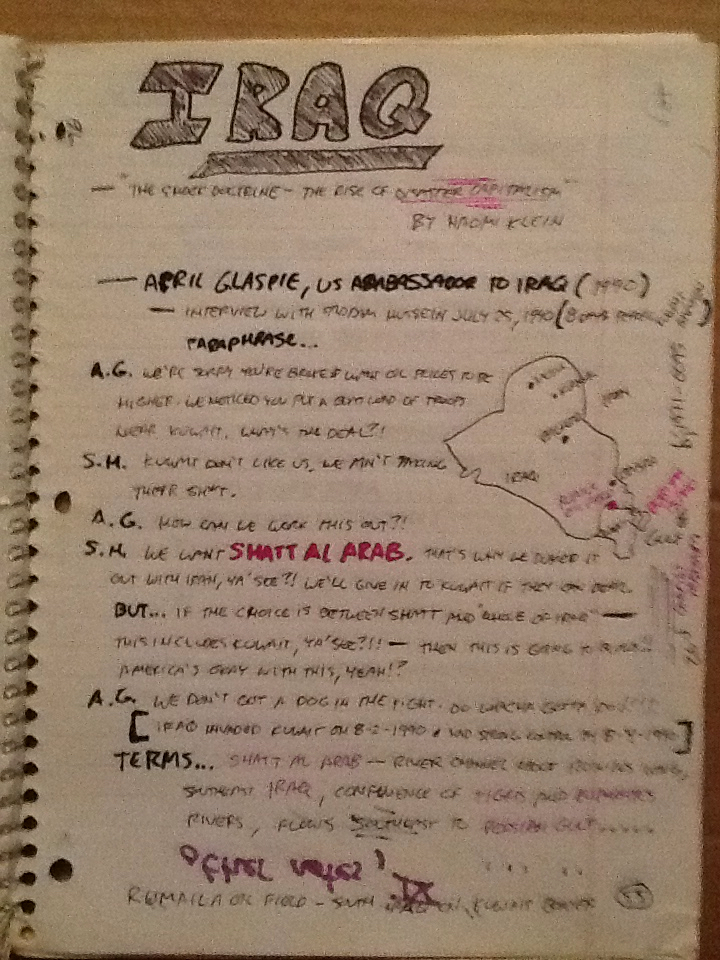 IRAQ
— "THE SHOCK DOCTRINE — THE RISE OF DISASTER CAPITALISM"
BY NAOMI KLEIN
— APRIL GLASPIE, US AMBASSADOR TO IRAQ (1990)
— INTERVIEW WITH SADDAM HUSSEIN JULY 25, 1990 (8 DAYS
PARAPHRASE...
A.G. WE'RE SORRY YOU'RE BROKE & WANT OIL PRICES TO BE
HIGHER. WE NOTICED YOU PUT A BUTT LOAD OF TROOPS
NEAR KUWAIT. WHAT'S THE DEAL?!
S.H. KUWAIT DON'T LIKE US. WE AIN'T TAKING
THEIR SH*T.
IRAQ
IRAN
A.G. HOW CAN WE WORK THIS OUT?!
S.H. WE WANT SHATT AL ARAB. THAT'S WHY WE DUKED IT
OUT WITH IRAN, YA'SEE?! WE'LL GIVE IN TO KUWAIT IF THEY CAN DEAL.
BUT... IF THE CHOICE IS BETWEEN SHATT AND "WHOLE OF IRAQ" —
THIS INCLUDES KUWAIT, YA'SEE?!! — THEN THIS IS GOING TO
AMERICA'S OKAY WITH THIS, YEAH!?
A.G. WE DON'T GOT A DOG IN THE FIGHT. DO WATCHA GOTTA
[IRAQ INVADED KUWAIT ON 8-2-1990 & HAD STRONG CONTROL BY 8-4-1990]
TERMS... SHATT AL ARAB — RIVER CHANNEL ABOUT
SOUTHEAST IRAQ, CONFLUENCE OF TIGRIS AND EUPHRATES
RIVERS, FLOWS SOUTHEAST TO PERSIAN GULF.....
RUMAILA OIL FIELD — SOUTH IRAQ ON KUWAIT BORDER
55